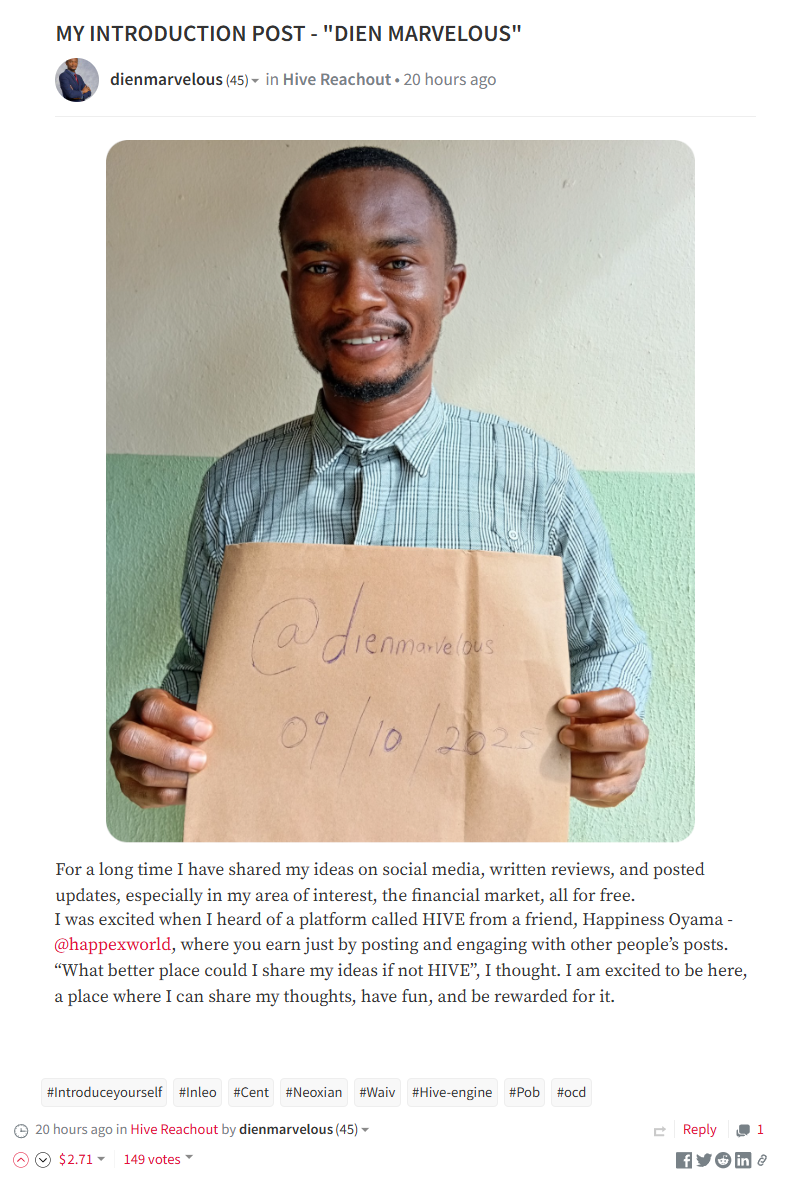 MY INTRODUCTION POST - "DIEN MARVELOUS"
dienmarvelous (45) in Hive Reachout • 20 hours ago
@dienmarvelous
09/10/2025
For a long time I have shared my ideas on social media, written reviews, and posted
updates, especially in my area of interest, the financial market, all for free.
I was excited when I heard of a platform called HIVE from a friend, Happiness Oyama -
@happexworld, where you earn just by posting and engaging with other people’s posts.
“What better place could I share my ideas if not HIVE”, I thought. I am excited to be here,
a place where I can share my thoughts, have fun, and be rewarded for it.
#Introduceyourself #Inleo #Cent #Neoxian #Waiv #Hive-engine #Pob #ocd
20 hours ago in Hive Reachout by dienmarvelous (45) Reply 1
$2.71 149 votes